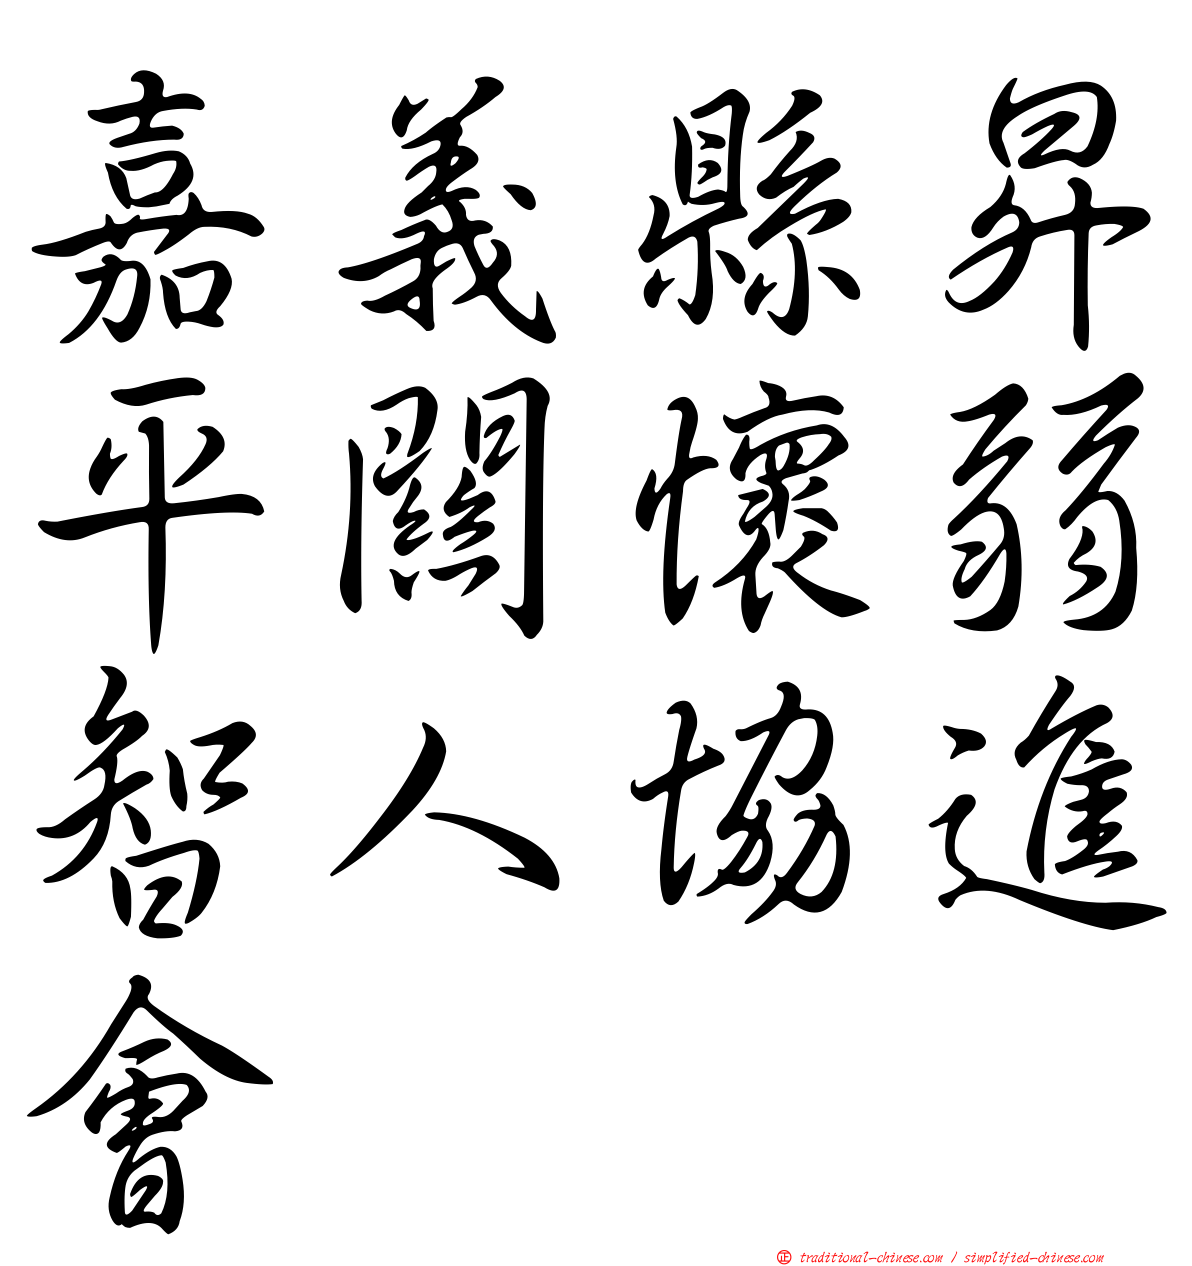 嘉義縣昇
平關懷弱
智人協進
會
正 traditional-chinese.com / simplified-chinese.com